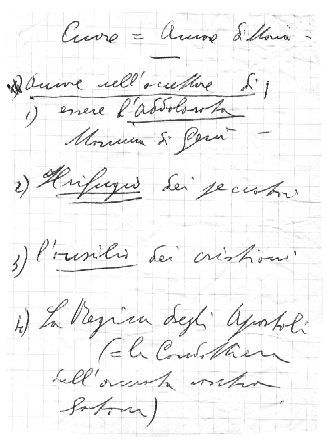 Cuore = Amore di Maria -
Amore nell'accettare di
1) essere l'Addolorata
Mamma di Gesù -
2) Il rifugio dei peccatori
3) l'ausilio dei cristiani
4) La Regina degli Apostoli
(= la Condottiera
dell'armata contro
Satana)